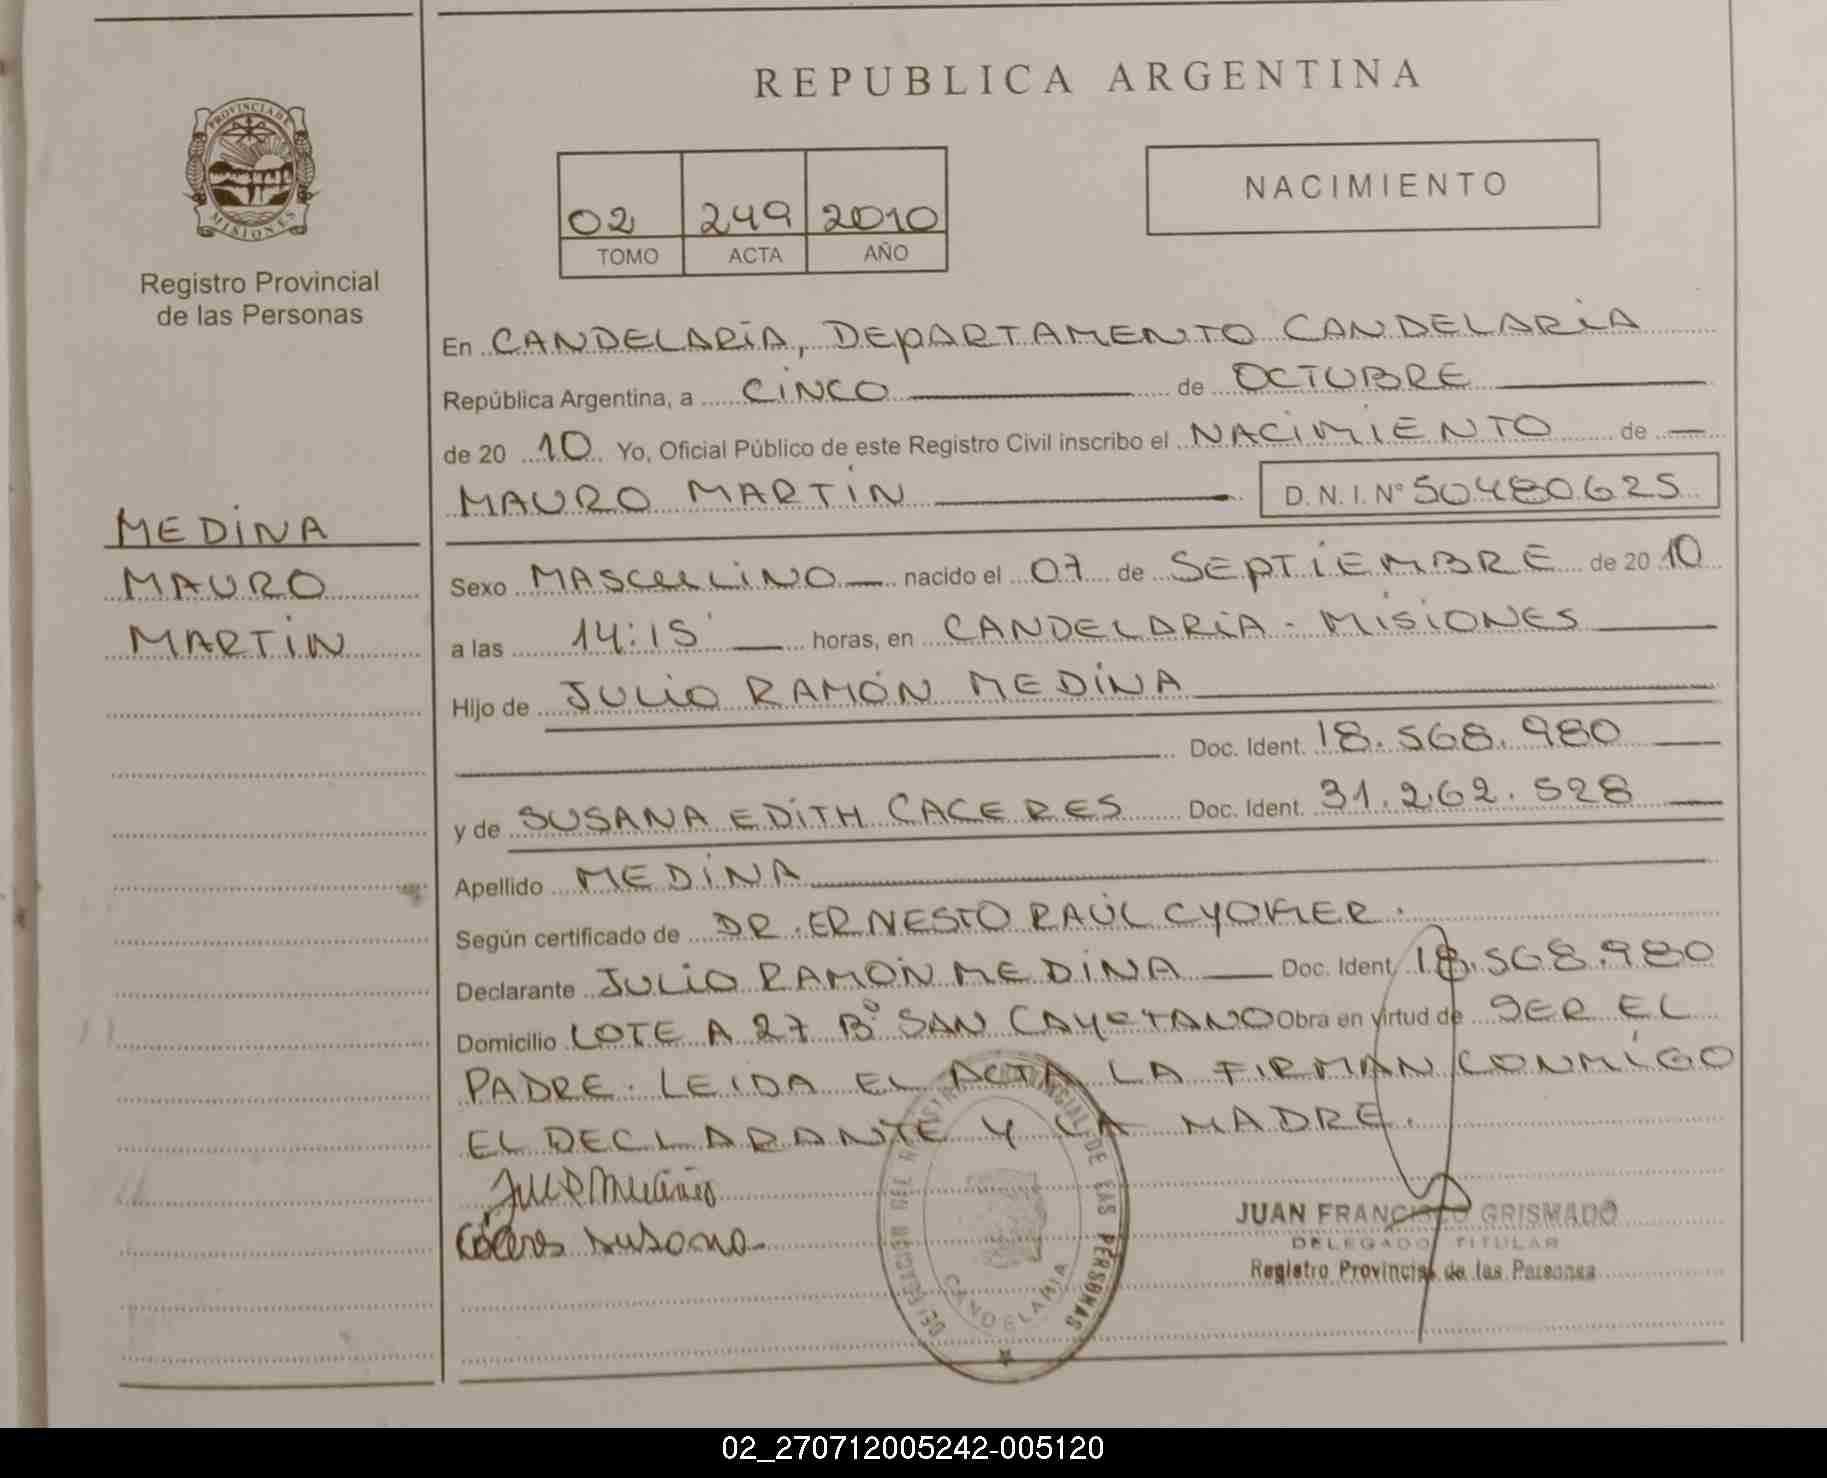 REPUBLICA ARGENTINA
PROVINCIA DE MISIONES
Registro Provincial
de las Personas
02 249 2010
TOMO ACTA AÑO
NACIMIENTO
MEDINA
MAURO
MARTIN
En CANDELARIA, DEPARTAMENTO CANDELARIA
República Argentina, a CINCO de OCTUBRE
de 20 10 Yo, Oficial Público de este Registro Civil inscribo el NACIMIENTO de
MAURO MARTIN D.N.I. Nº 50480625
Sexo MASCULINO nacido el 07 de SEPTIEMBRE de 20 10
a las 14:15 horas, en CANDELARIA - MISIONES
Hijo de JULIO RAMÓN MEDINA
Doc. Ident. 18.568.980
y de SUSANA EDITH CACERES Doc. Ident. 31.262.528
Apellido MEDINA
Según certificado de DR. ERNESTO RAÚL CYOKER.
Declarante JULIO RAMÓN MEDINA Doc. Ident. 18.568.980
Domicilio LOTE A 27 Bº SAN CAYETANO Obra en virtud de SER EL
PADRE. LEIDA EL ACTA LA FIRMAN CONMIGO
EL DECLARANTE Y LA MADRE.
Caceres Susana
DELEGACION DEL REGISTRO PROVINCIAL DE LAS PERSONAS
CANDELARIA
JUAN FRANCISCO GRISMADO
DELEGADO TITULAR
Registro Provincial de las Personas
02_270712005242-005120